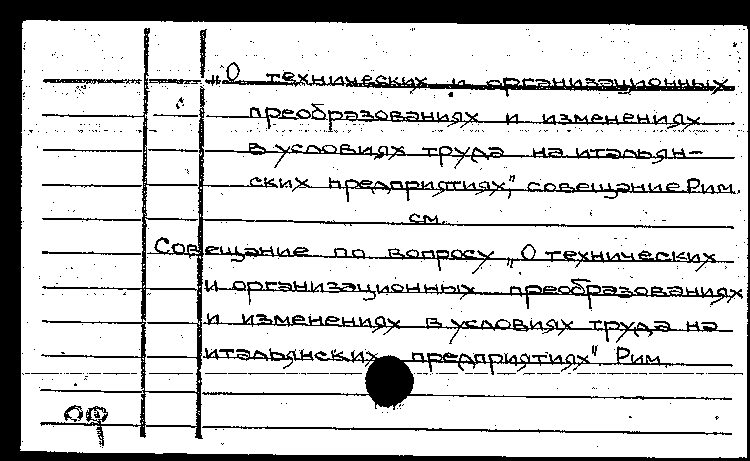 „О технических и организационных
преобразованиях и изменениях
в условиях труда на италъян-
ских предприятиях," совещание Рим.
см.
Совещание по вопросу „О технических
и организационных преобразованиях
и изменениях в условиях труда на
итальянских предприятиях" Рим